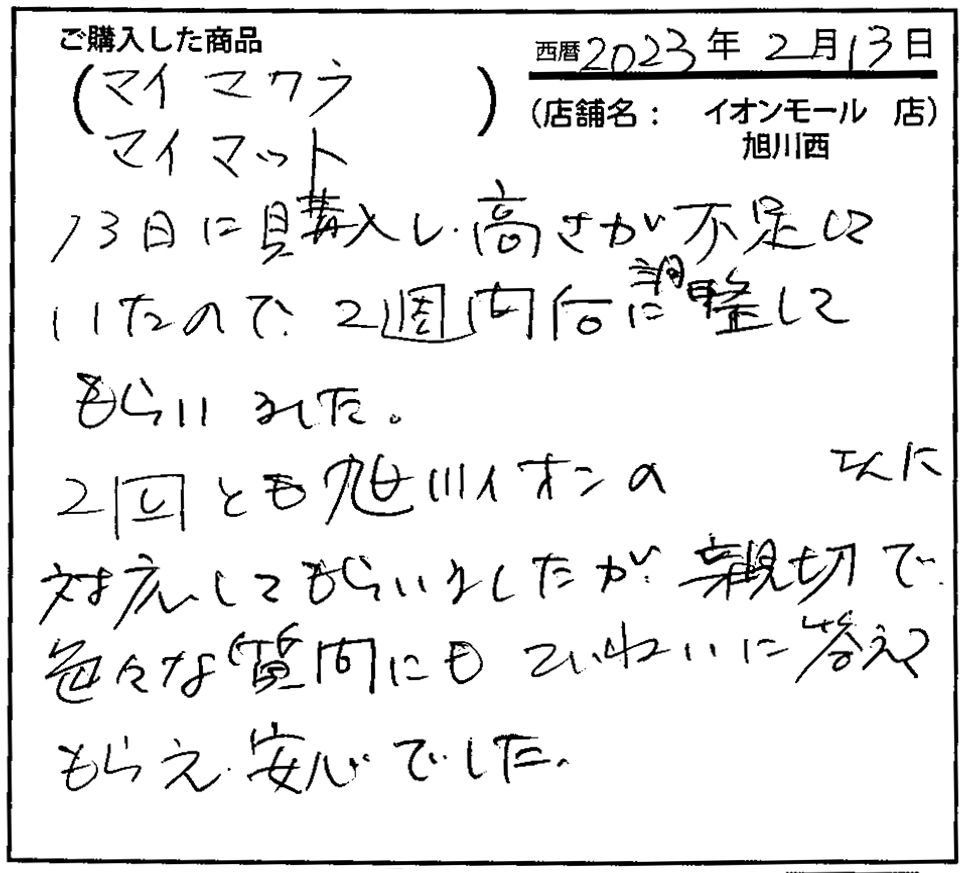 ご購入した商品
西暦2023年2月13日
(マイマクラ
マイマット)
(店舗名: イオンモール 店)
旭川西
13日に購入し、高さが不足して
いたので、2週間後に調整して
もらいました。
2回とも旭川イオンの さんに
対応してもらいましたが、親切で、
色々な質問にもていねいに答えて
もらえ、安心でした。